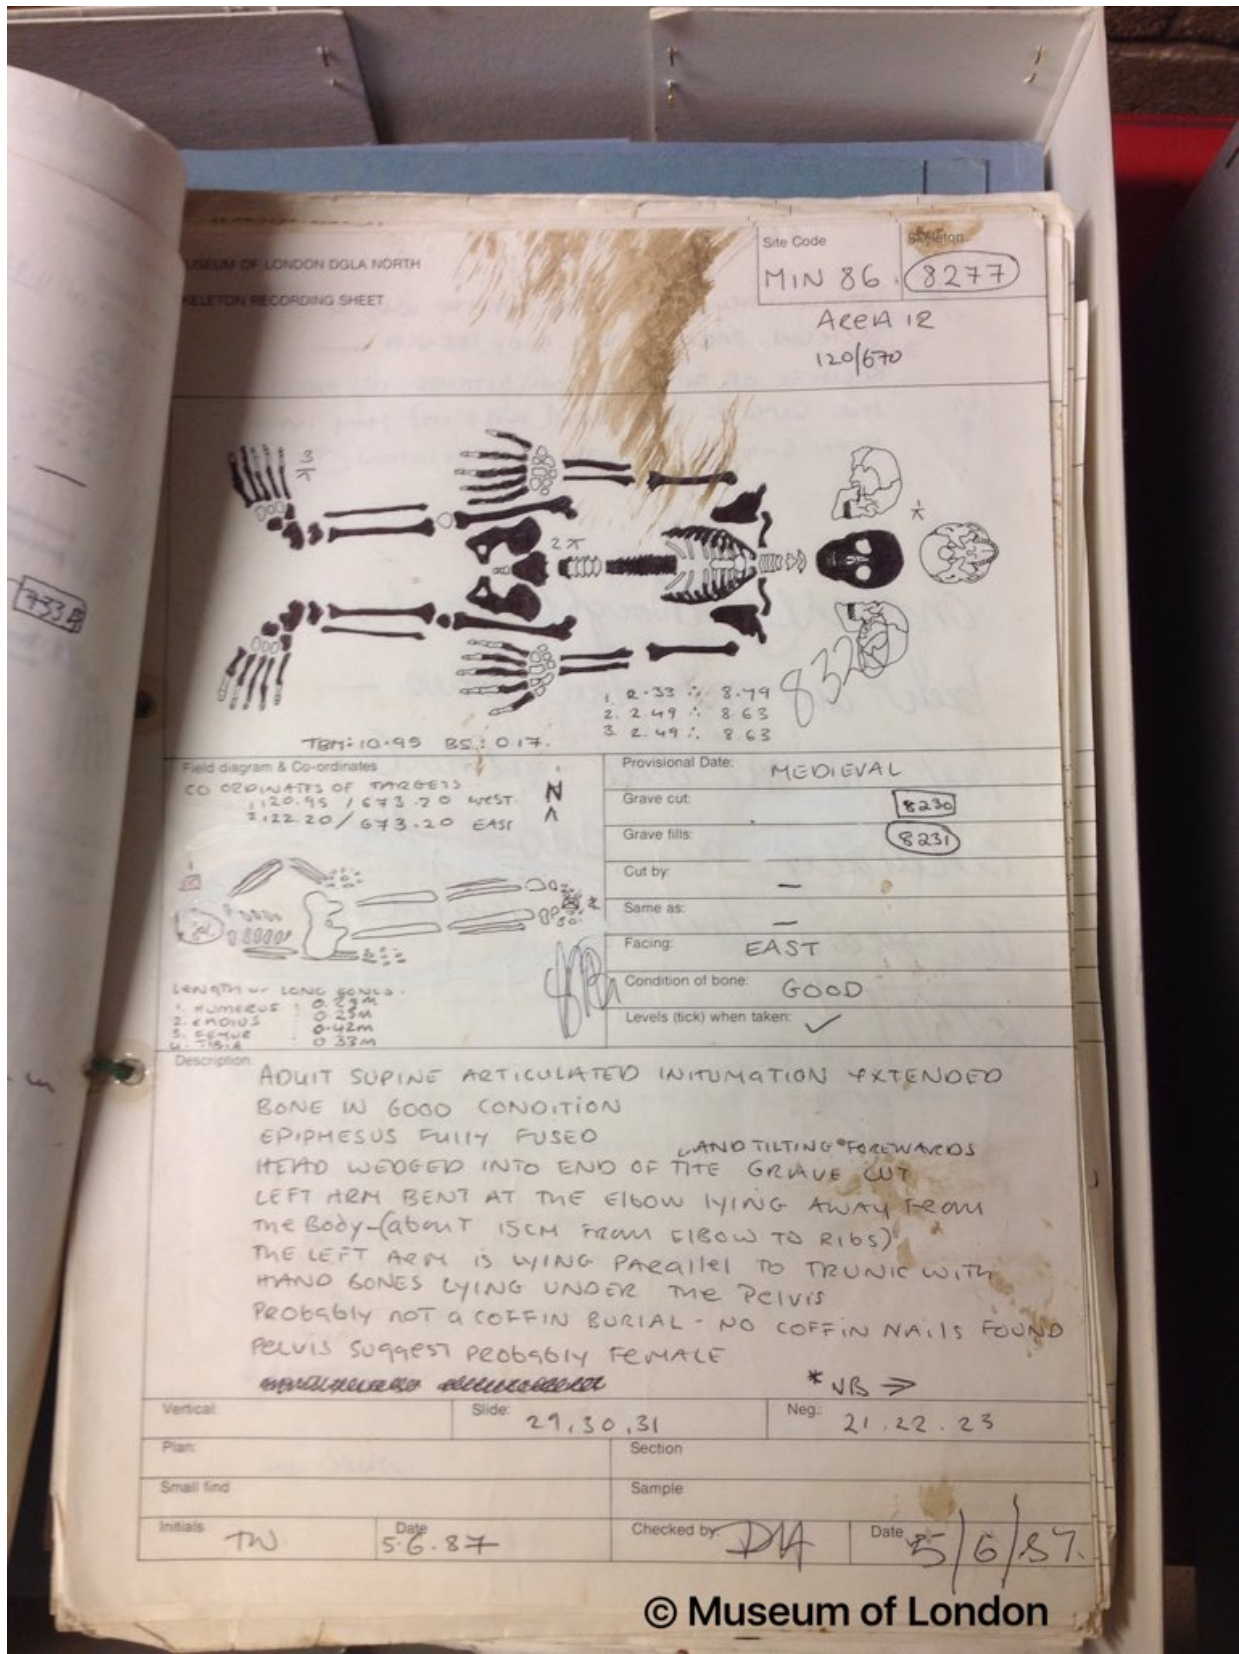 MUSEUM OF LONDON DGLA NORTH
SKELETON RECORDING SHEET
Site Code
MIN 86
Skeleton
8277
AREA 12
120/670
733
3
2
1
832
1. 2.33 ∴ 8.79
2. 2.49 ∴ 8.63
3. 2.49 ∴ 8.63
TBM: 10.95 BS: 0.17.
Field diagram & Co-ordinates
CO ORDINATES OF TARGETS
1. 120.95 / 673.20 WEST
2. 122.20 / 673.20 EAST
N
1
2
LENGTH OF LONG BONES.
1. HUMERUS : 0.29M
2. RADIUS : 0.23M
3. FEMUR : 0.42M
4. TIBIA : 0.33M
Provisional Date: MEDIEVAL
Grave cut: 8230
Grave fills: 8231
Cut by: —
Same as: —
Facing: EAST
Condition of bone: GOOD
Levels (tick) when taken: ✓
Description
ADULT SUPINE ARTICULATED INHUMATION EXTENDED
BONE IN GOOD CONDITION
EPIPHESUS FULLY FUSED
AND TILTING FOREWARDS
HEAD WEDGED INTO END OF THE GRAVE CUT
LEFT ARM BENT AT THE ELBOW LYING AWAY FROM
THE BODY - (ABOUT 15CM FROM ELBOW TO RIBS)
THE LEFT ARM IS LYING PARALLEL TO TRUNK WITH
HAND BONES LYING UNDER THE PELVIS
PROBABLY NOT A COFFIN BURIAL - NO COFFIN NAILS FOUND
PELVIS SUGGEST PROBABLY FEMALE
* NB →
Vertical:
Slide: 29, 30, 31
Neg.: 21. 22. 23
Plan:
Section
Small find
Sample
Initials TW
Date 5.6.87
Checked by DM
Date 5/6/87.
© Museum of London